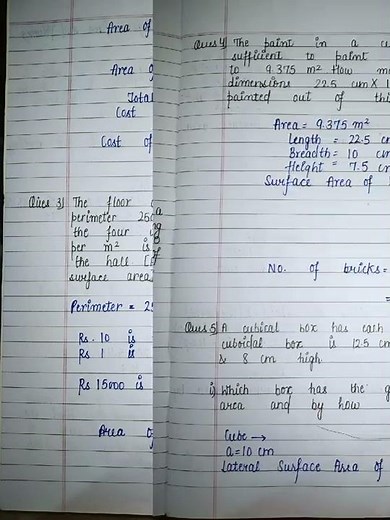 Area of
Area o
Total
Cost
Cost of
Ques 3) The floor
perimeter 250
the four
per m² is
the hall
surface area
Perimeter = 25
Rs. 10 is
Rs 1 is
Rs 15000 is
Area o
Ques 4) The paint in a c
sufficient to paint
to 9.375 m² How m
dimensions 22.5 cm X 1
painted out of thi
Area = 9.375 m²
Length = 22.5 c
Breadth = 10 cm
Height = 7.5 c
Surface Area of
No. of bricks =
=
Ques 5) A cubical box has each
cuboidal box is 12.5 cm
& 8 cm high
i) Which box has the g
area and by how
Cube →
a = 10 cm
Lateral Surface Area of